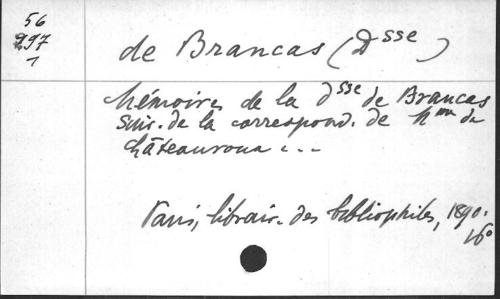 56
297
1
de Brancas (Dsse)
Mémoires de la dsse de Brancas
suiv. de la correspond. de Mme de
Châteauroux ...
Paris, librair. des bibliophiles, 1890.
16°